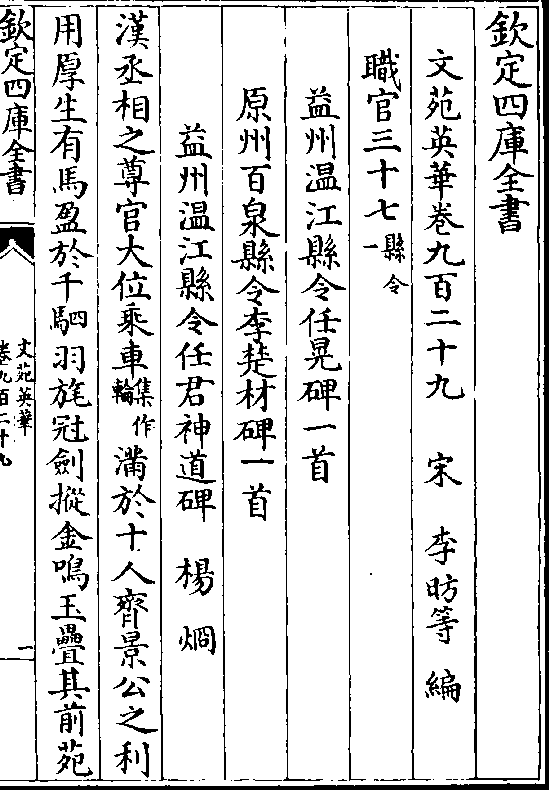 欽定四庫全書
文苑英華卷九百二十九　宋　李昉等　編
職官三十七
縣令
一
益州温江縣令任晃碑一首
原州百泉縣令李楚材碑一首
益州温江縣令任君神道碑　楊　烱
漢丞相之尊官大位乘車集作輪滿於十人齊景公之利
用厚生有馬盈於千駟羽旄冠劍摐金鳴玉疊其前苑
欽定四庫全書
文苑英華
卷九百二十九
一